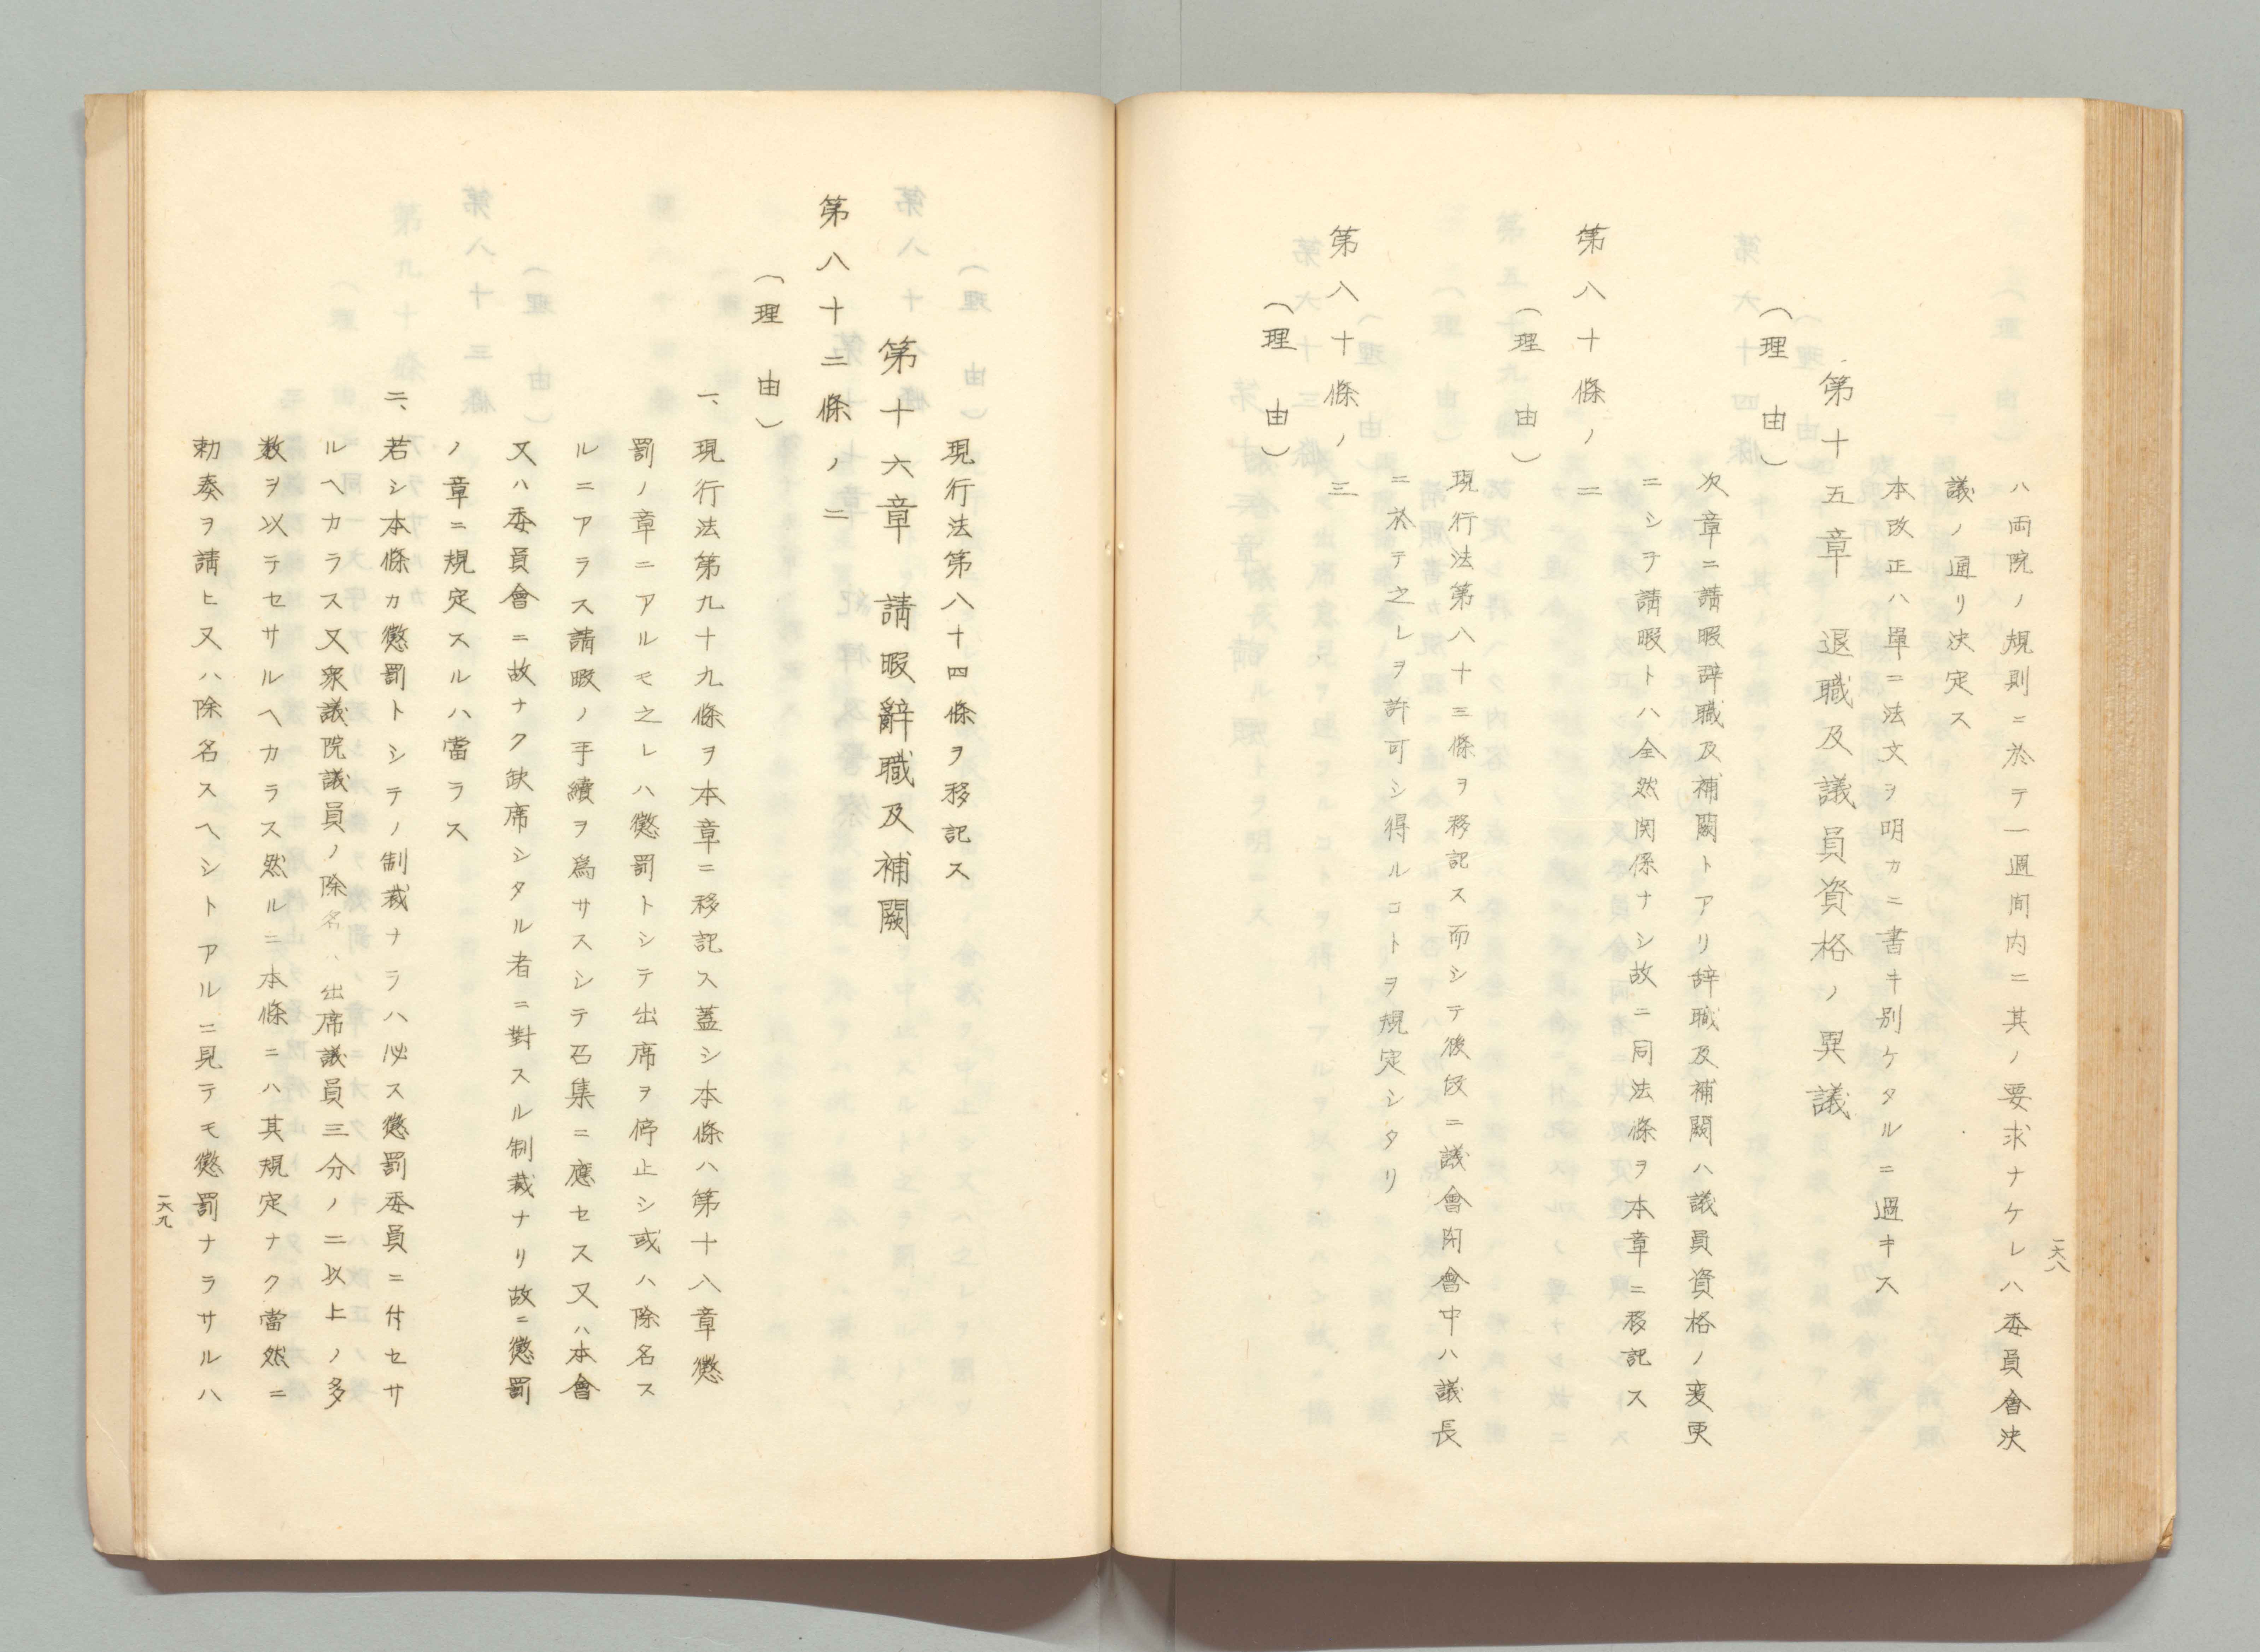 ハ両院ノ規則ニ於テ一週間内ニ其ノ要求ナケレハ委員會決
議ノ通リ決定ス
本改正ハ單ニ法文ヲ明カニ書キ別ケタルニ過キス
第十五章 退職及議員資格ノ異議
(理由)
次章ニ請暇辞職及補闕トアリ辞職及補闕ハ議員資格ノ変更
ニシヲ請暇トハ全然関係ナシ故ニ同法條ヲ本章ニ移記ス
第八十條ノ二
(理由)
現行法第八十三條ヲ移記ス而シテ後段ニ議會閉會中ハ議長
ニ於テ之レヲ許可シ得ルコトヲ規定シタリ
第八十條ノ三
(理由)
一六八
現行法第八十四條ヲ移記ス
第十六章 請暇辭職及補闕
第八十二條ノ二
(理由)
一、現行法第九十九條ヲ本章ニ移記ス蓋シ本條ハ第十八章懲
罰ノ章ニアルモ之レハ懲罰トシテ出席ヲ停止シ或ハ除名ス
ルニアラス請暇ノ手續ヲ爲サスシテ召集ニ應セス又ハ本會
又ハ委員會ニ故ナク缺席シタル者ニ對スル制裁ナリ故ニ懲罰
ノ章ニ規定スルハ當ラス
二、若シ本條カ懲罰トシテノ制裁ナラハ必ス懲罰委員ニ付セサ
ルヘカラス又衆議院議員ノ除名ハ出席議員三分ノ二以上ノ多
数ヲ以テセサルヘカラス然ルニ本條ニハ其規定ナク當然ニ
勅奏ヲ請ヒ又ハ除名スヘシトアルニ見テモ懲罰ナラサルハ
一六九